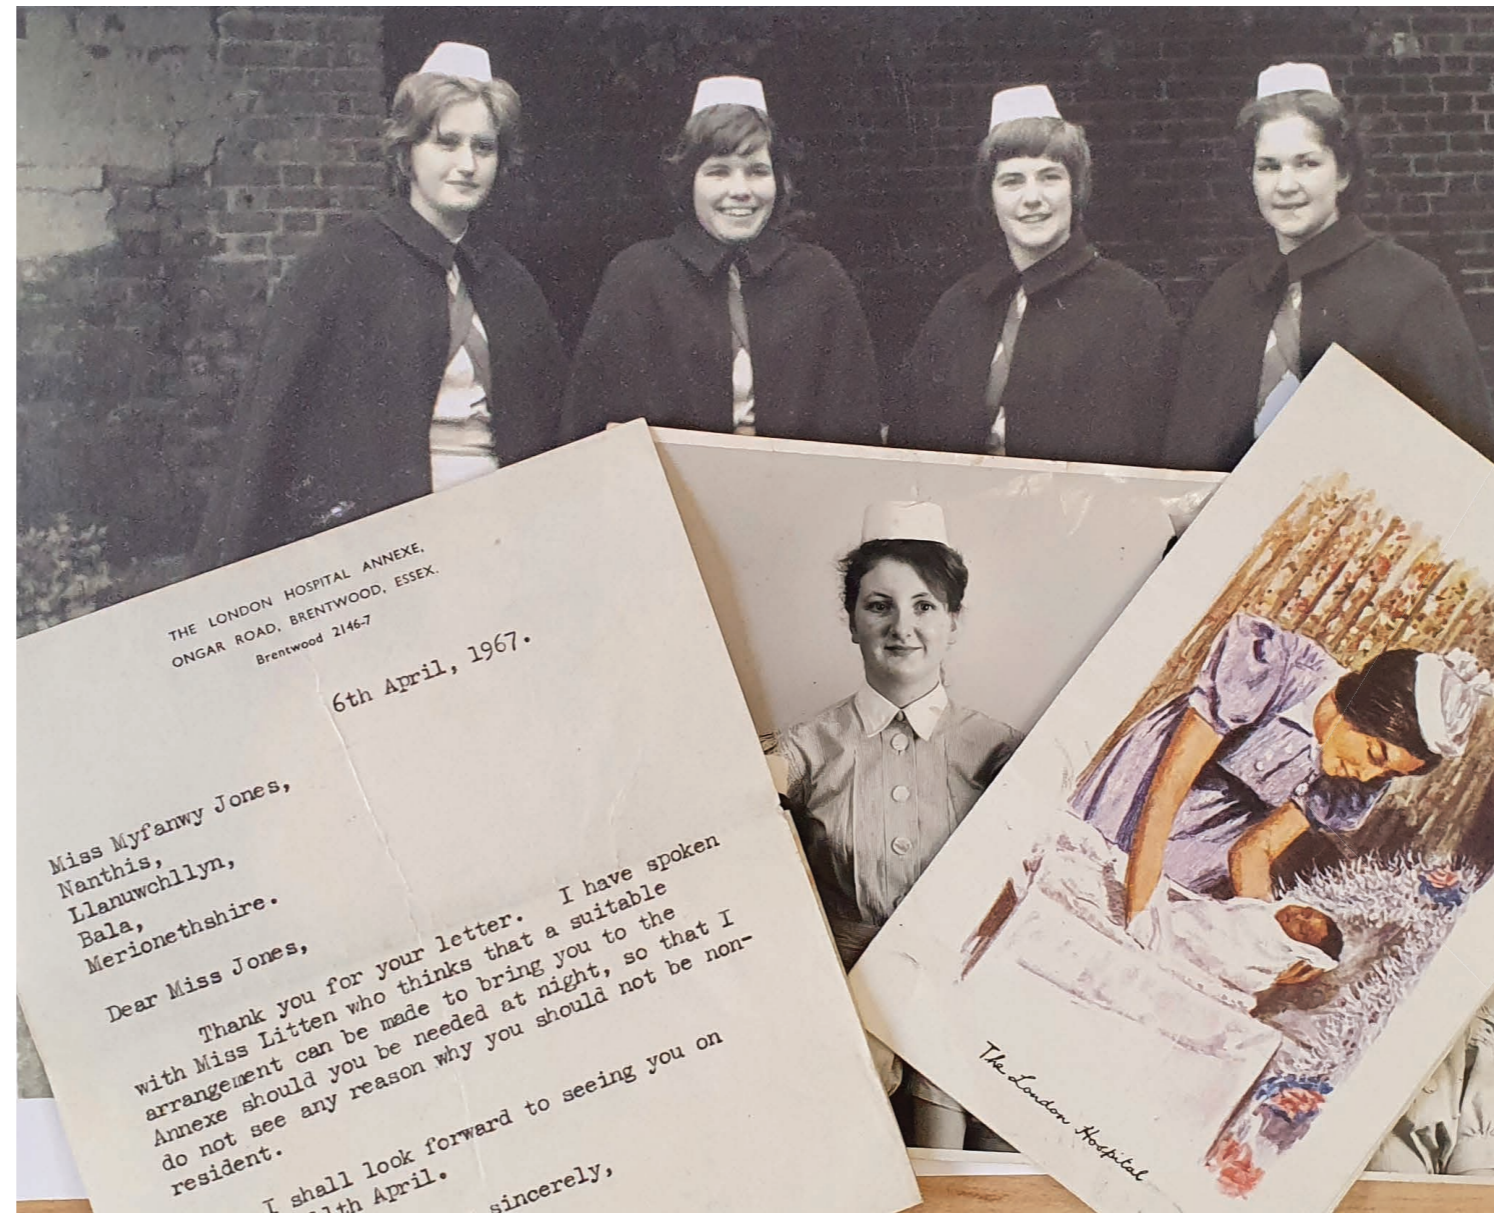 THE LONDON HOSPITAL ANNEXE,
ONGAR ROAD, BRENTWOOD, ESSEX.
Brentwood 2146-7
6th April, 1967.
Miss Myfanwy Jones,
Nanthis,
Llanuwchllyn,
Bala,
Merionethshire.
Dear Miss Jones,
Thank you for your letter. I have spoken
with Miss Litten who thinks that a suitable
arrangement can be made to bring you to the
Annexe should you be needed at night, so that I
do not see any reason why you should not be non-
resident.
I shall look forward to seeing you on
April.
sincerely,
The London Hospital